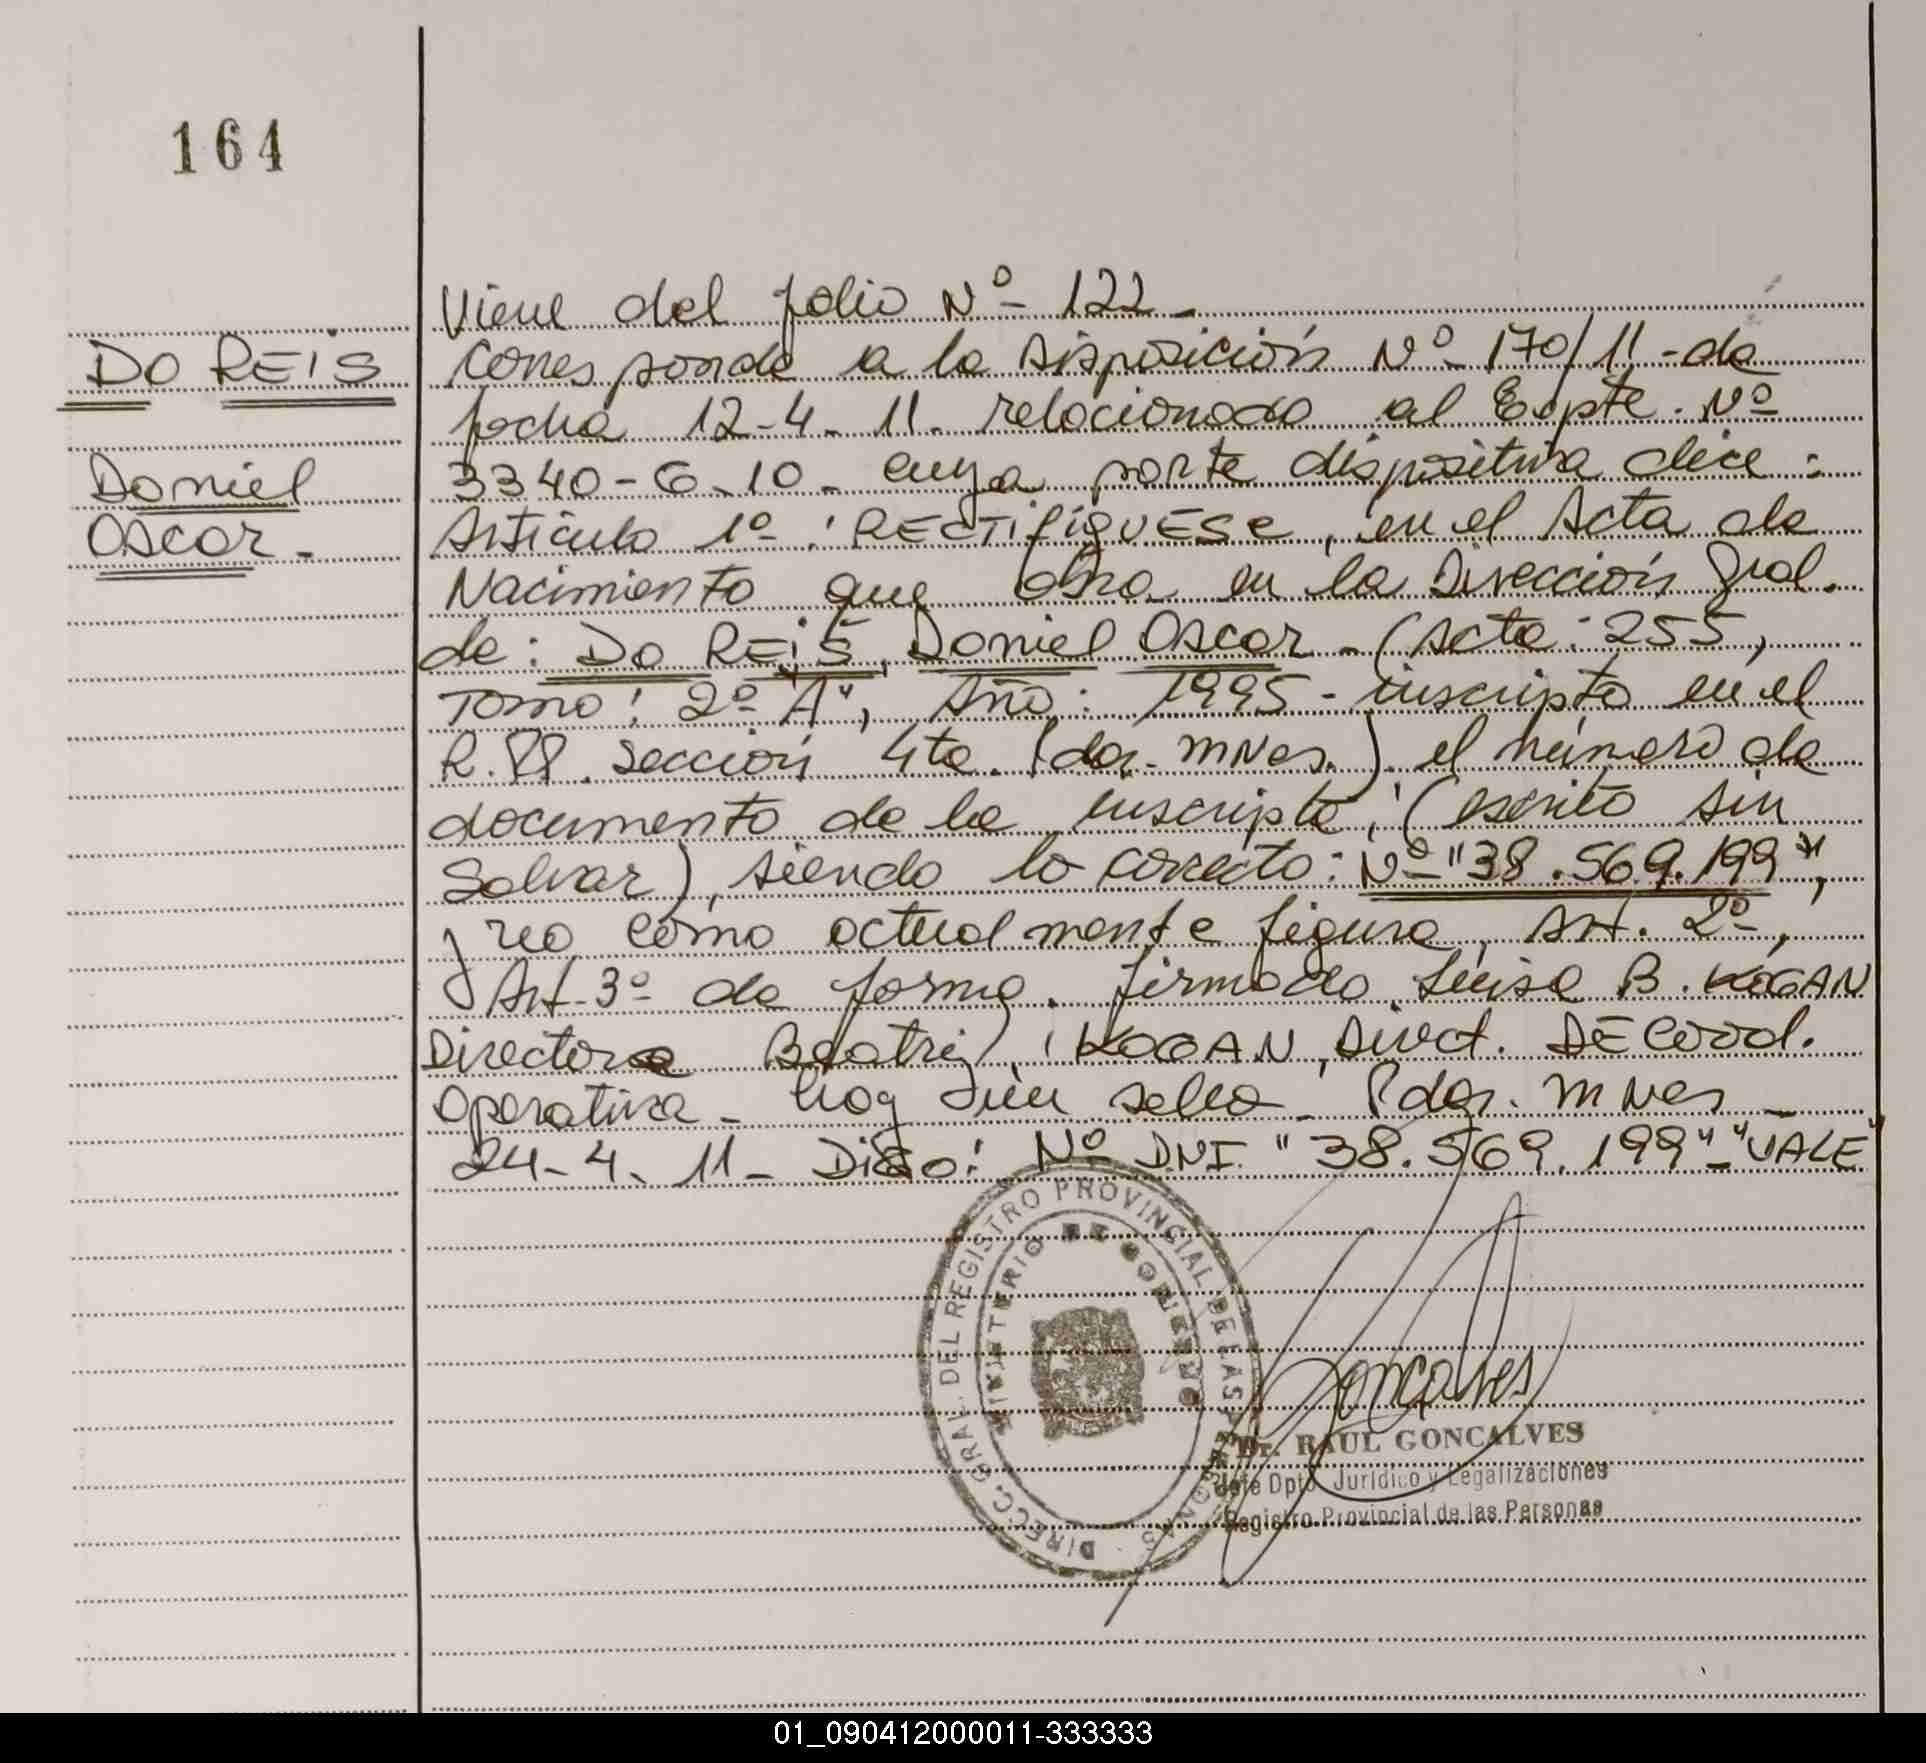 164
DO REIS
Daniel
Oscar -
Viene del folio Nº - 122 -
Corresponde a la disposición Nº - 170/11 - de
fecha 12-4-11. relacionado al Expte. Nº
3340-G-10 - cuya parte dispositiva dice :
Artículo 1º : RECTIFIQUESE, en el Acta de
Nacimiento que obra en la Dirección Gral.
de : DO REIS, Daniel Oscar - (Acta : 255,
Tomo : 2º "A", Año : 1995 - inscripto en el
R. PP. Sección 4ta. Pdas. Mnes.) el número de
documento de la inscripta, (escrito sin
Salvar), siendo lo correcto : Nº "38.569.199",
y no como actualmente figura, Art. 2º,
Art. 3º de forma. firmado Luisa B. KOGAN
Directora Beatriz KOGAN, Direct. DE Coord.
Operativa - hay un sello - Pdas. Mnes -
24-4-11 - Digo : Nº D.N.I. "38.569.199" - "VALE"
DIRECC. GRAL. DEL REGISTRO PROVINCIAL DE LAS PERSONAS
MINISTERIO DE GOBIERNO
Goncalves
Dr. RAUL GONCALVES
Jefe Dpto. Jurídico y Legalizaciones
Registro Provincial de las Personas
01_090412000011-333333